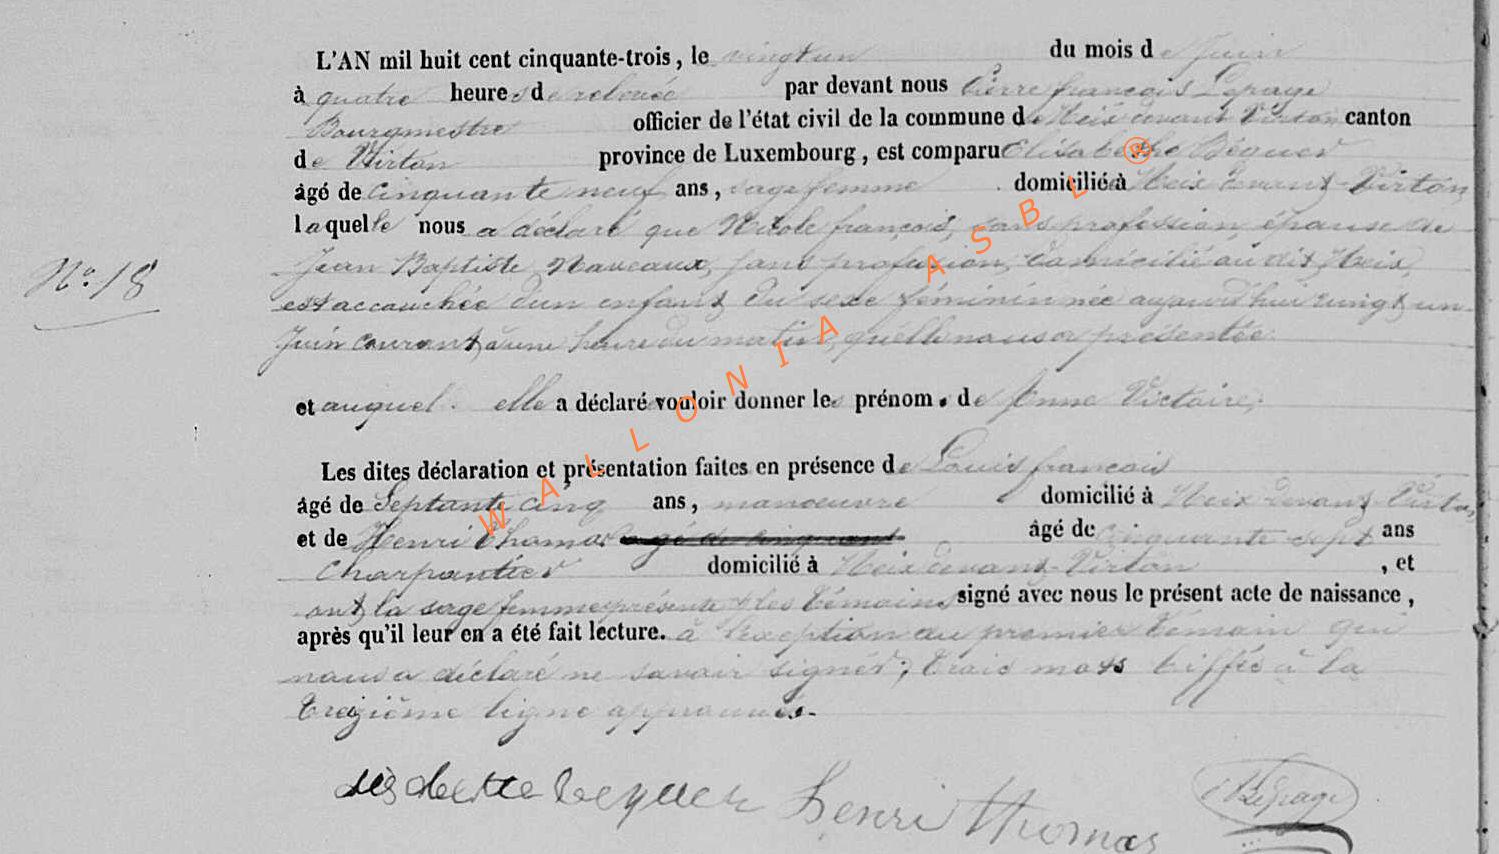 L'AN mil huit cent cinquante-trois, le vingt un du mois de Juin
à quatre heures de relevée par devant nous Pierre françois Lepage
Bourgmestre officier de l'état civil de la commune de Meix devant Virton canton
de Virton province de Luxembourg, est comparu Elisabethe Béguer
âgé de cinquante neuf ans, sage femme domicilié à Meix devant-Virton
laquelle nous a déclaré que Nicole françois, sans profession, épouse de
Jean Baptiste Naveaux, sans profession, domicilié au dit Meix,
N.° 18
est accouchée d'un enfant du sexe féminin née aujourd'hui vingt un
Juin courant à une heure du matin, qu'elle nous a présentée
et auquel elle a déclaré vouloir donner les prénom. de Victoire,
Les dites déclaration et présentation faites en présence de Louis françois
âgé de Septante cinq ans, manoeuvre domicilié à Meix devant-Virton,
et de Henri Thomas âgé de cinquante sept ans
Charpantier domicilié à Meix devant-Virton, et
ont la sage femme présente & les témoins signé avec nous le présent acte de naissance,
après qu'il leur en a été fait lecture. à l'exception du premier témoin qui
nous a déclaré ne savoir signer; trois mots biffés à la
treizième ligne approuvés.
beguer Henri Thomas Lepage
WALLONIA ASBL ®